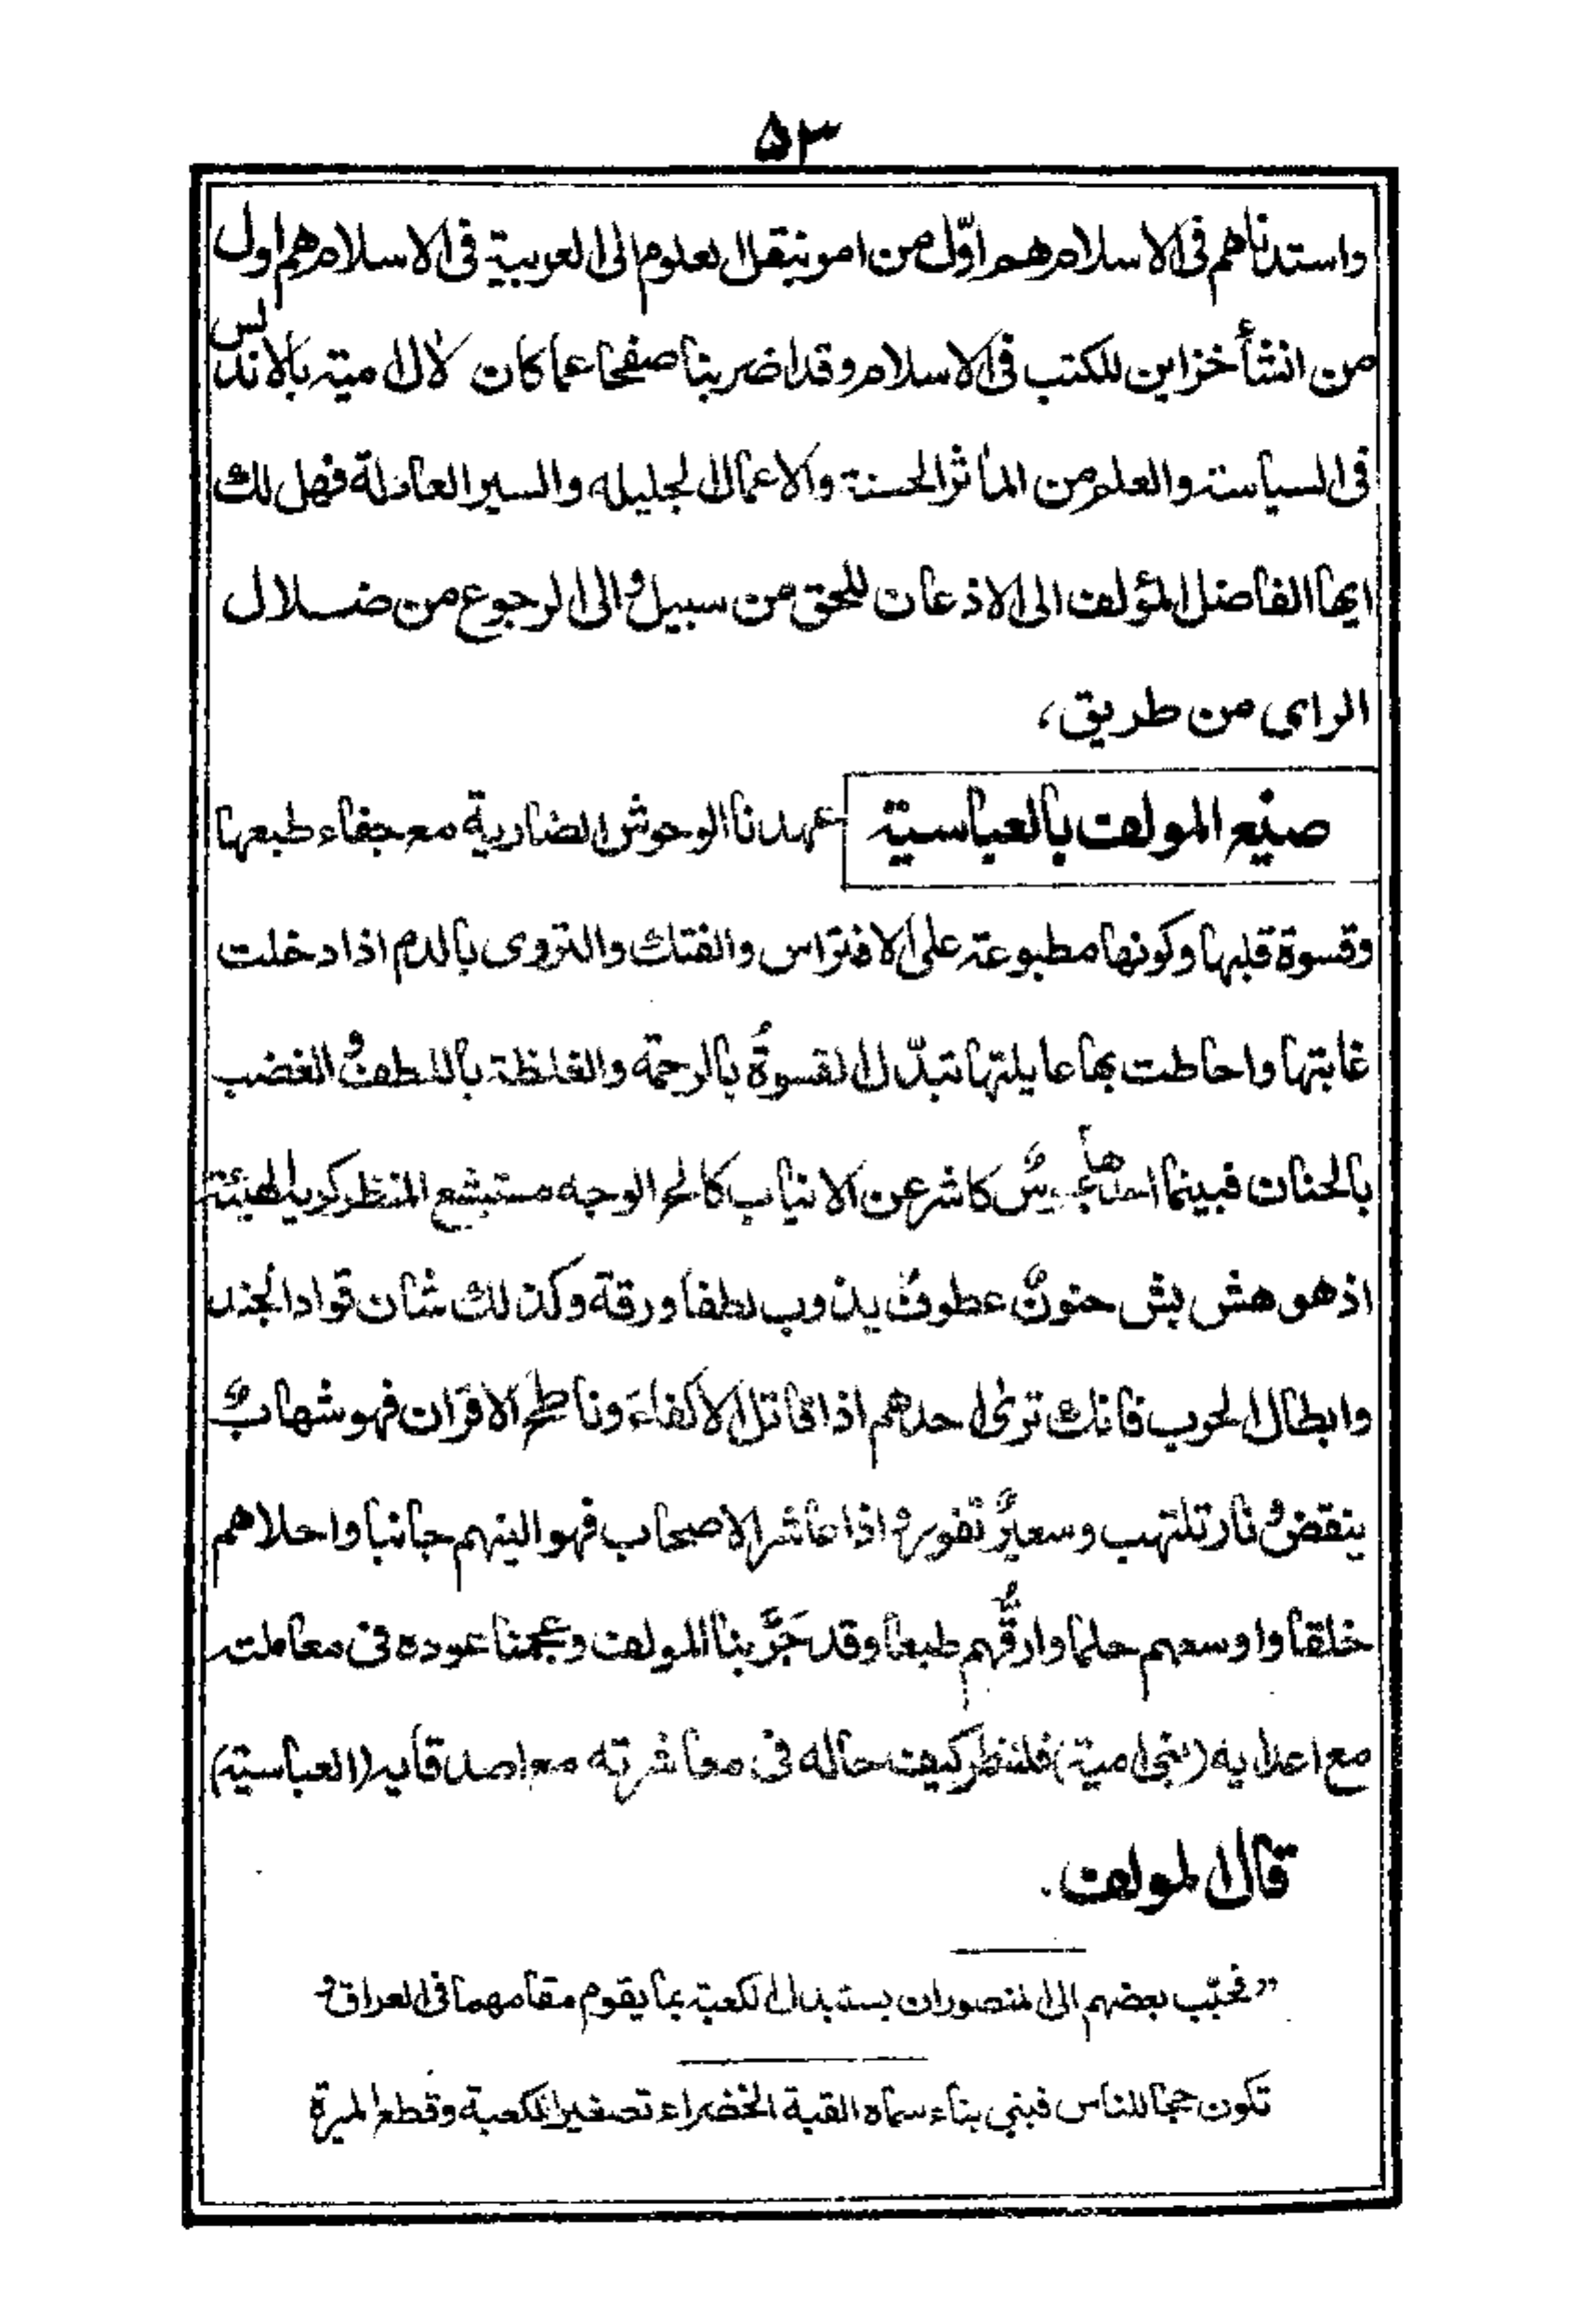 ٥٣
واستدناهم فى الاسلام هم اوّل من امر بنقل العلوم الى العربية فى الاسلام هم اول
من انشأ خزاين للكتب فى الاسلام وقد اضربنا صفحا عما كان لآل امية بالاندلس
فى السياسة والعلم من المآثر الحسنة والاعمال الجليله والسير العادلة فهل لك
ايها الفاضل المؤلف الى الاذعان للحق من سبيل والى الرجوع من ضلال
الراى من طريق،
صنيع المولف بالعباسية عهدنا الوحوش الضارية مع جفاء طبعها
وقسوة قلبها وكونها مطبوعة على الافتراس والفتك والتروى بالدم اذا دخلت
غابتها واحاطت بها عايلتها تبدّل القسوةُ بالرحمة والغلظة باللطف والغضب
بالحنان فبينما احدها عبوسٌ كاشر عن الانياب كالح الوجه مستبشع المنظر كريه الهيئة
اذ هو هش بش حنونٌ عطوفٌ يذوب لطفا ورقة وكذلك شان قواد الجند
وابطال الحرب فانك ترى احدهم اذا قاتل الاكفاءَ وناطح الاقران فهو شهابٌ
ينقض ونار تلتهب وسعيرٌ تفور واذا عاشر الاصحاب فهو الينهم جانبا واحلاهم
خلقا واوسعهم حلما وارقُّهم طبعا وقد جَرَّبنا المولف وعجمنا عوده فى معاملته
مع اعدايه (بنى امية) فلننظر كيف حاله فى معاشرته مع اصدقايه (العباسية)
قال المولف.
"فحبّب بعضهم الى المنصور ان يستبدل الكعبة بما يقوم مقامهما فى العراق و
تكون حجا للناس فبنى بناء سماه القبة الخضراء تصغيرا للكعبة وقطع الميرة